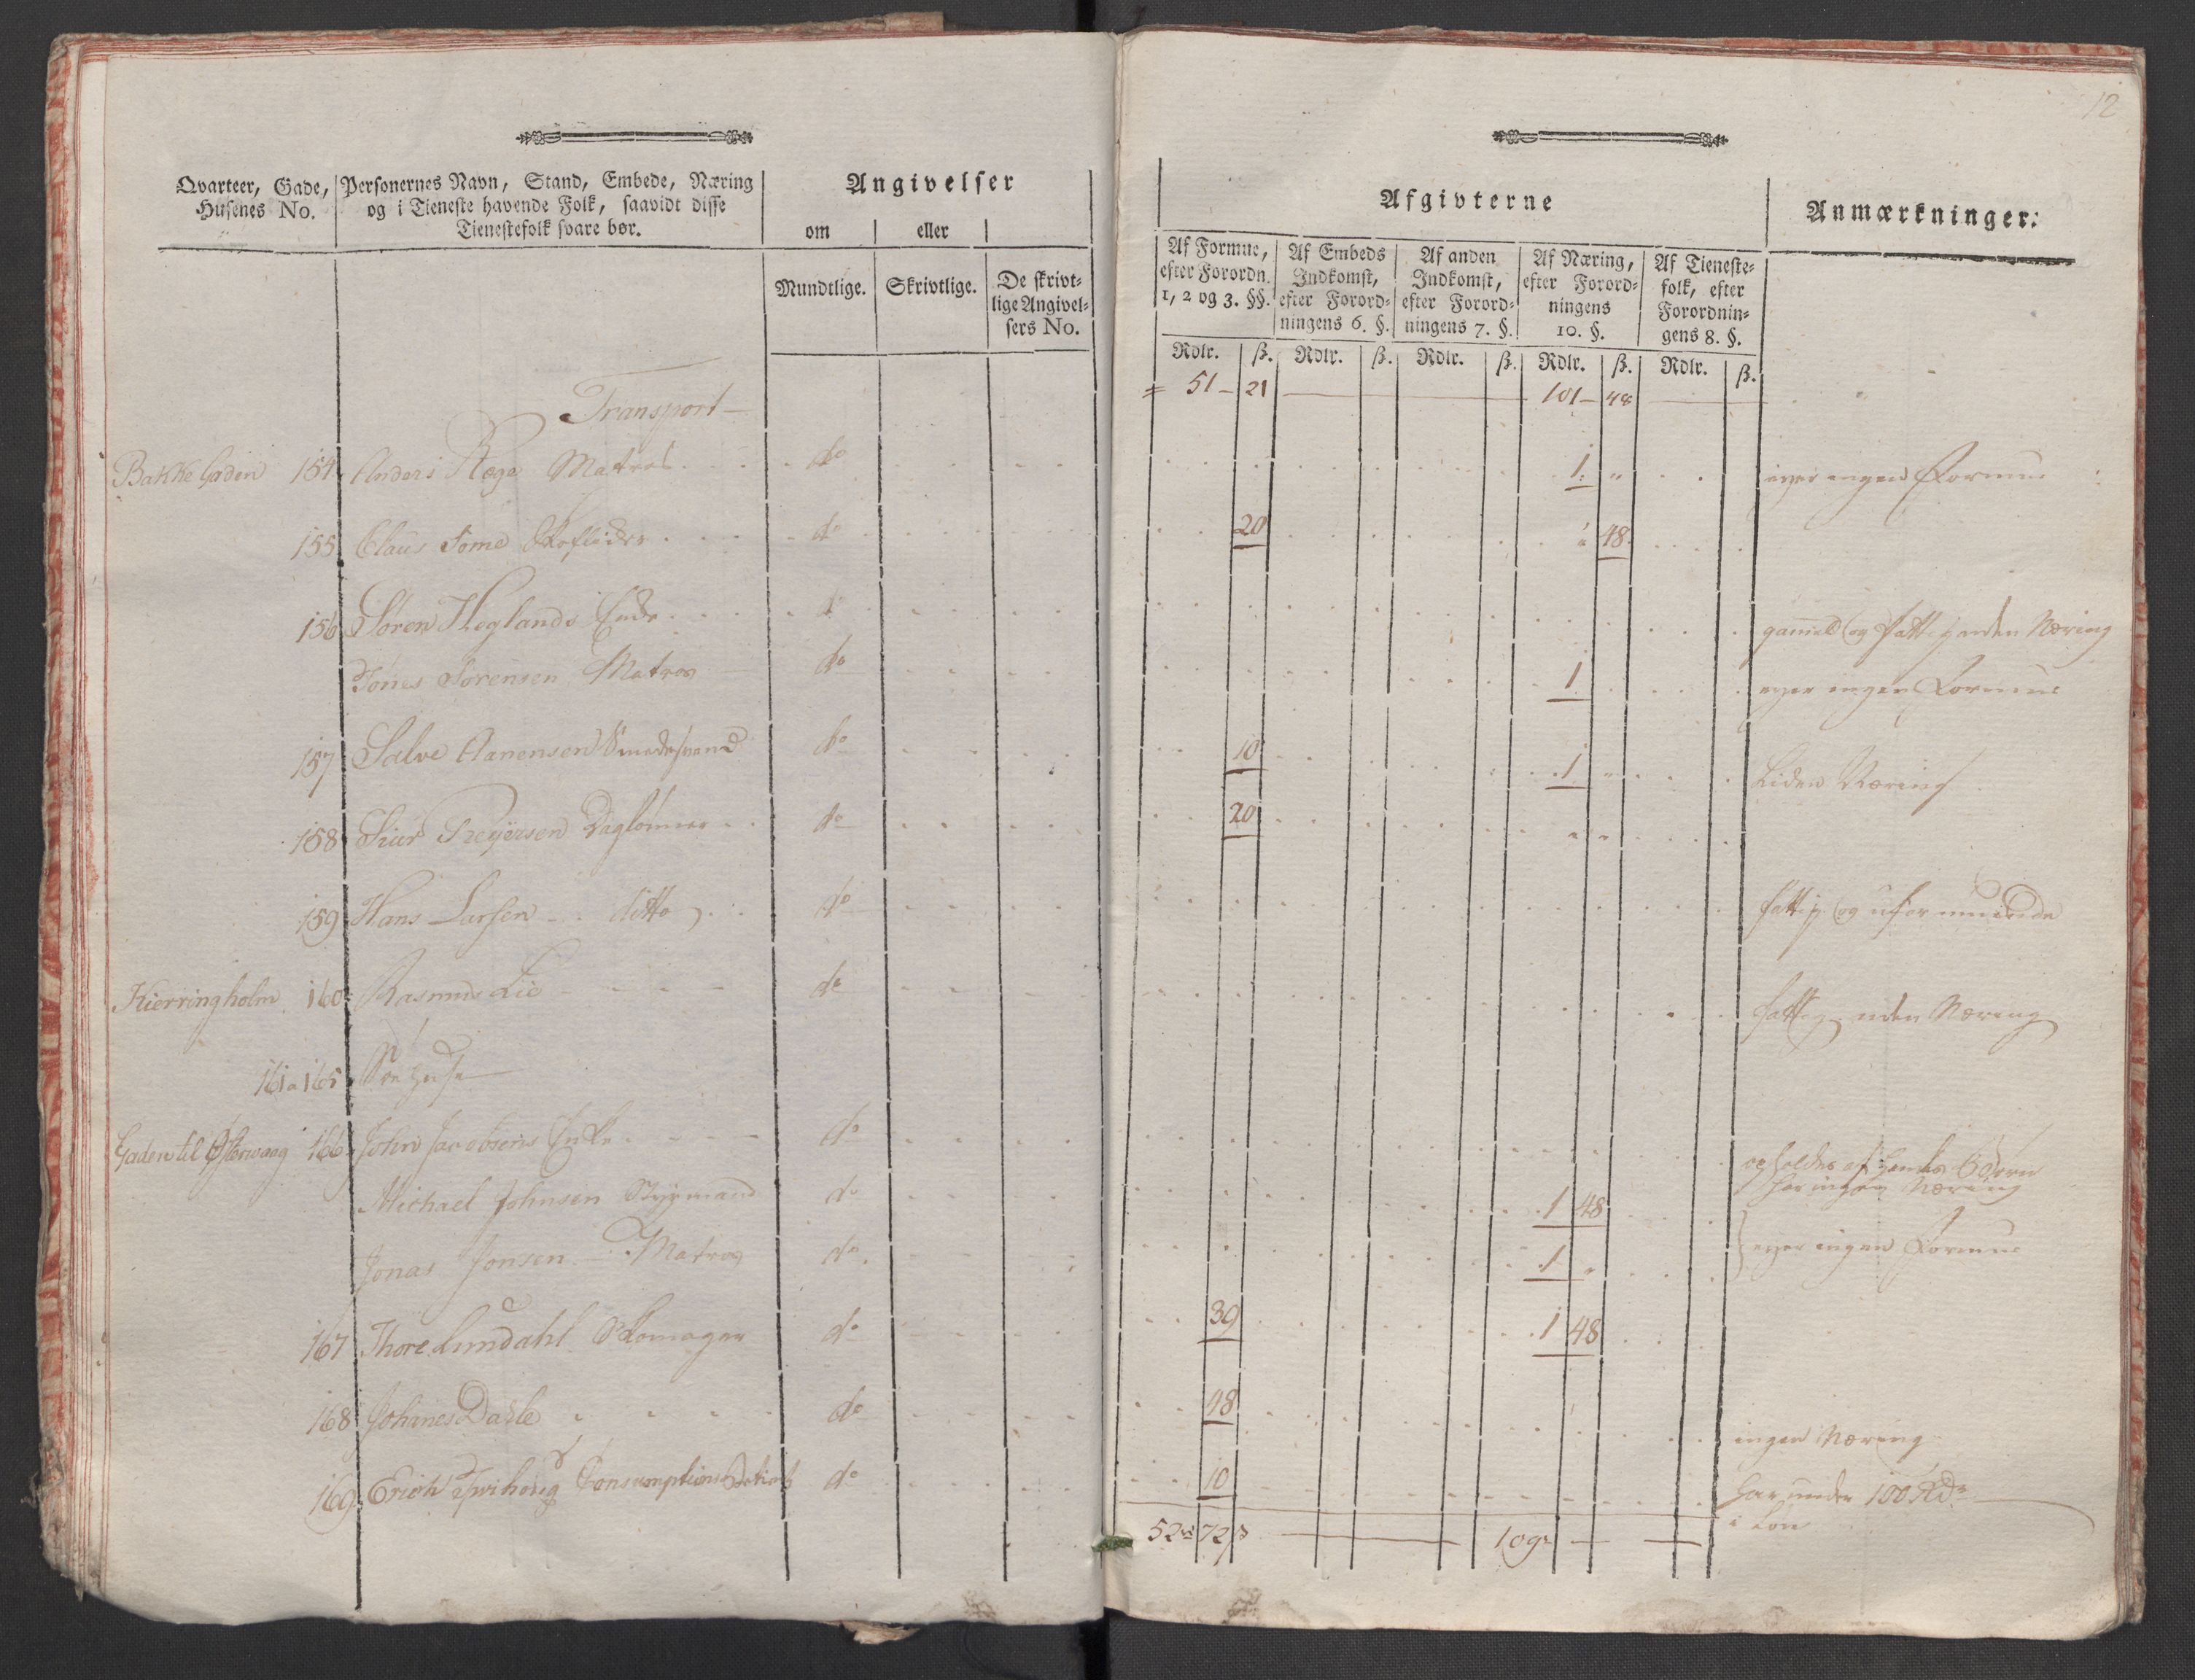 12
Qvarteer, Gade, Husenes No.
Personernes Navn, Stand, Embede, Næring og i Tieneste havende Folk, saavidt disse Tienestefolk svare bør.
Angivelser
om eller
Mundtlige. Skrivtlige. De skrivtlige Angivelsers No.
Afgivterne
Anmærkninger:
Af Formue, efter Forordn. 1, 2 og 3. §§.
Af Embeds Indkomst, efter Forordningens 6. §.
Af anden Indkomst, efter Forordningens 7. §.
Af Næring, efter Forordningens 10. §.
Af Tienestefolk, efter Forordningens 8. §.
Rdlr. ß. Rdlr. ß. Rdlr. ß. Rdlr. ß. Rdlr. ß.
Transport 51 21 101 48
Bakke Gaden 154 Anders Matros do 1 " eyer ingen Formue
155 Claus Tome do 20 " 48
156 Søren Heglands Enke do gammel og fattig uden Næring
Jones Sørensen Matros do 1 eyer ingen Formue
157 Salve Aanensen do 10 1 " Liden Næring
158 Siur Daglonner do 20 " "
159 Hans Larsen ditto do fattig og uformuende
Kierringholm 160 Rasmus Lie do fattig uden Næring
161 a 165 Søe Huse
Gaden til Østervaag 166 John Jacobsens Enke do af hendes Børn
har ingen Næring
Michael Johnsen Styrmand do 1 48
Jonas Jonsen Matros do 1 " eyer ingen Formue
167 Thore Lundahl Skomager do 39 1 48
168 Johnes do 48 ingen Næring
169 Erich Consumptions do 10 har under 100 Rdr
i Løn
52 72 109